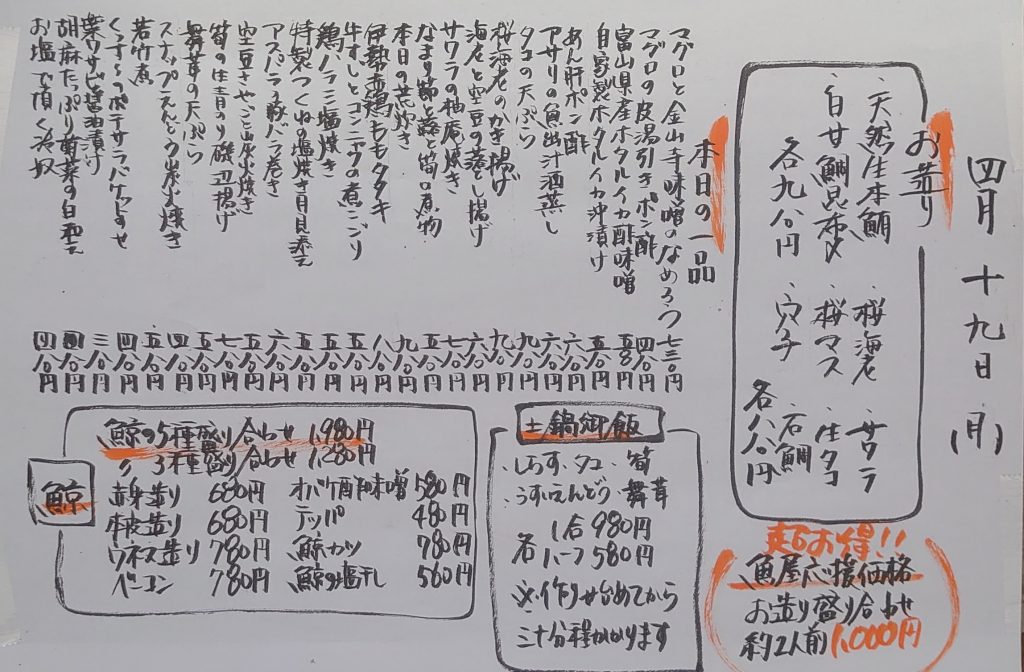 四月十九日(月)
お造り
・天然生本鯛 ・桜海老 ・サワラ
・白甘鯛昆布〆 ・桜マス ・生タコ
各九八〇円 ・穴子 ・石鯛
各八八〇円
超お得!!
魚屋応援価格
お造り盛り合わせ
約2人前1,000円
本日の一品
マグロと金山寺味噌のなめろう 七三〇円
マグロの皮湯引きポン酢 四八〇円
富山県産ホタルイカ酢味噌 五八〇円
自家製ホタルイカ沖漬け 五八〇円
あん肝ポン酢 六八〇円
アサリの魚出汁酒蒸し 六八〇円
タコの天ぷら 九八〇円
桜海老のかき揚げ 九八〇円
海老と空豆の落とし揚げ 六八〇円
サワラの柚庵焼き 七八〇円
なまり節と蕗と筍の煮物 五八〇円
本日の荒炊き 九八〇円
伊勢赤鶏ももタタキ 八八〇円
牛すじとコンニャクの煮こごり 五八〇円
鶏ハラミ塩焼き 五八〇円
特製つくねの塩焼き月見添え
アスパラ豚バラ巻き
空豆さやごと炭火焼き
筍の生青のり磯辺揚げ
舞茸の天ぷら
スナップえんどう炭火焼き
若竹煮
くっす〜のポテサラバケットのせ
葉ワサビ醤油漬け
胡麻たっぷり菊菜の白和え
お塩で頂く冷奴
土鍋御飯
・しらす・タコ・筍
・うすいえんどう・舞茸
各 1合 980円
ハーフ 580円
※作り始めてから
三十分程かかります
鯨
鯨の5種盛り合わせ 1,980円
〃 3種盛り合わせ 1,280円
赤身造り 680円 オバケ酢味噌 580円
本皮造り 680円 テッパ 480円
ウネス造り 780円 鯨カツ 780円
ベーコン 780円 鯨の塩干し 560円